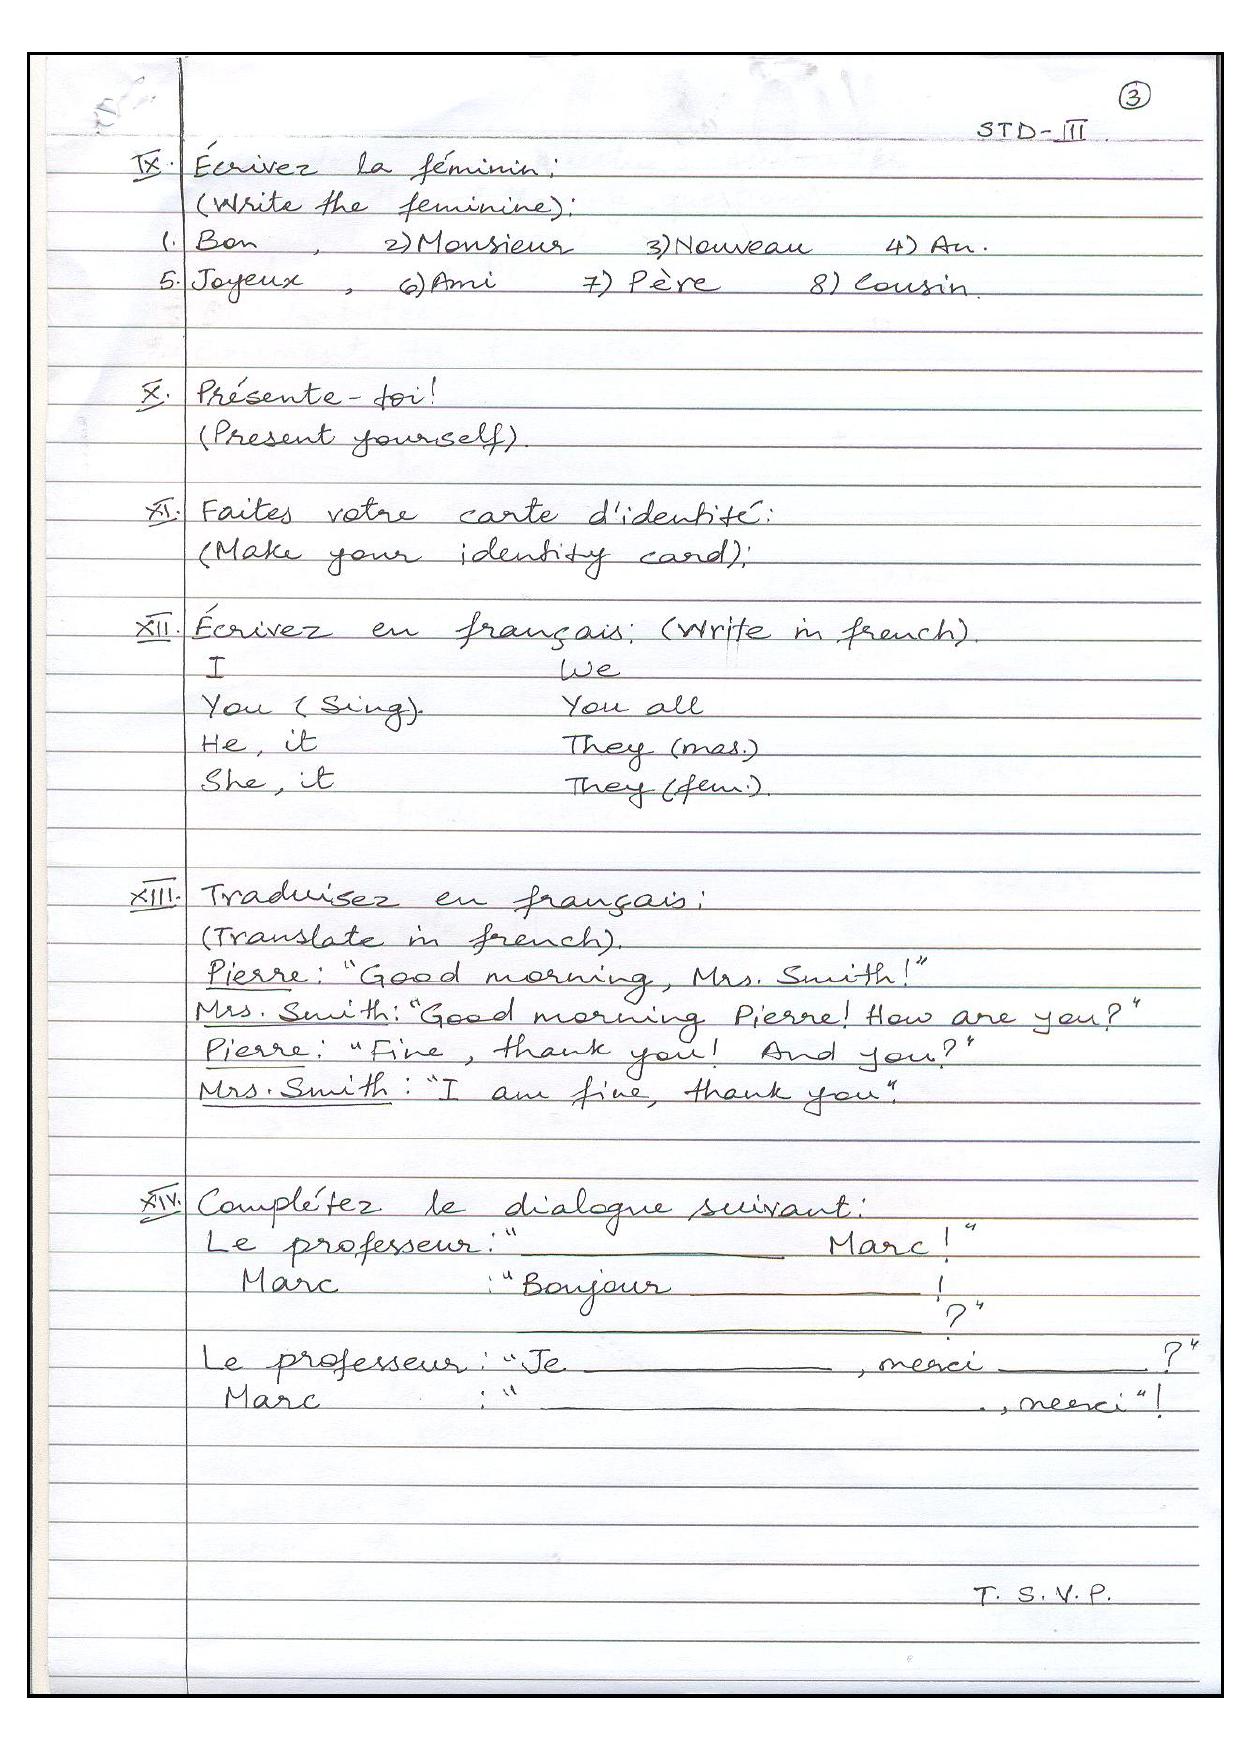 3
STD-III.
IX. Écrivez la féminin:
(Write the feminine):
1. Bon , 2) Monsieur 3) Nouveau 4) An.
5. Joyeux , 6) Ami 7) Père 8) Cousin.
X. Présente-toi!
(Present yourself).
XI. Faites votre carte d'identité:
(Make your identity card):
XII. Écrivez en français: (Write in french).
I We
You (Sing). You all
He, it They (mas.)
She, it They (fem.).
XIII. Traduisez en français:
(Translate in french).
Pierre: "Good morning, Mrs. Smith!"
Mrs. Smith: "Good morning Pierre! How are you?"
Pierre: "Fine, thank you! And you?"
Mrs. Smith: "I am fine, thank you".
XIV. Complétez le dialogue suivant:
Le professeur: "__________ Marc!"
Marc : "Bonjour __________!
__________?"
Le professeur: "Je __________, merci ______?"
Marc : "__________., merci"!
T. S. V. P.